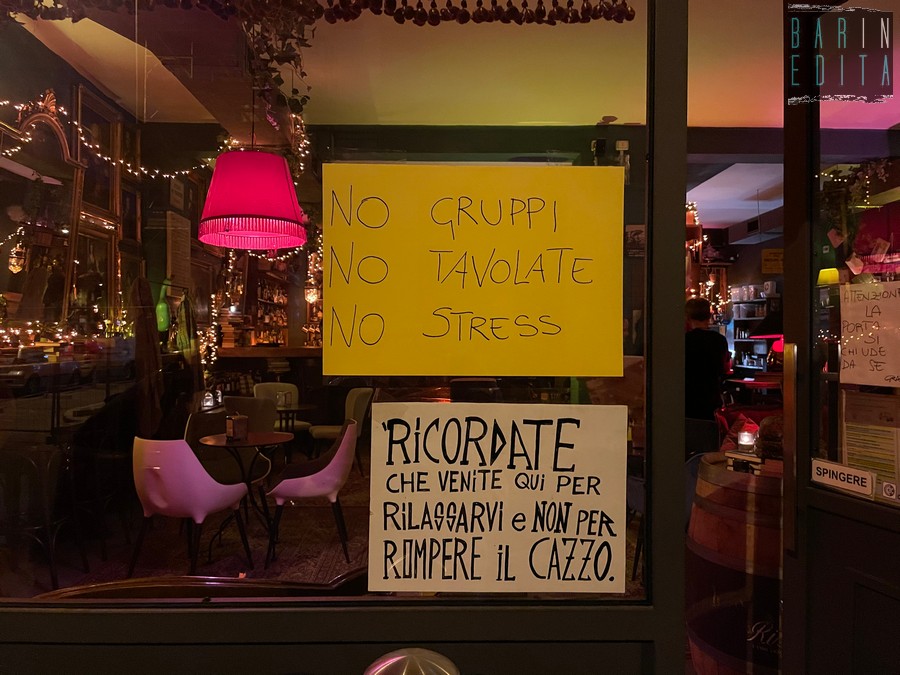 BARIN
EDITA
NO GRUPPI
NO TAVOLATE
NO STRESS
RICORDATE
CHE VENITE QUI PER
RILASSARVI e NON PER
ROMPERE iL CAZZO.
ATTENZIONE
LA
PORTA
SI
CHIUDE
DA SE
SPINGERE